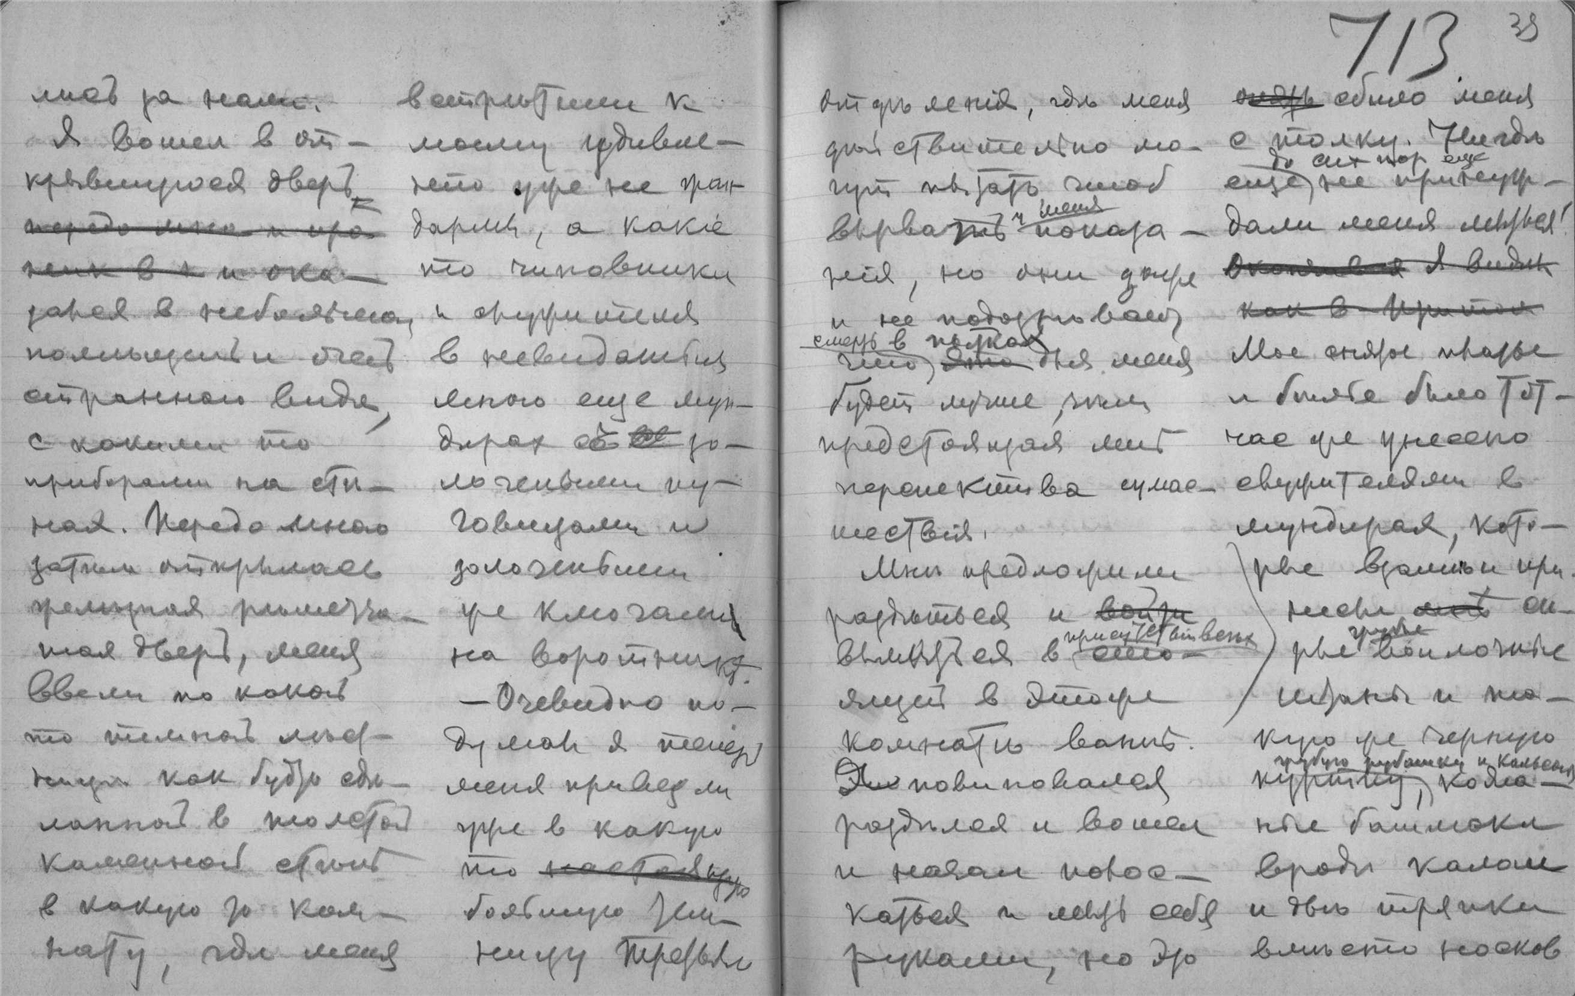 лись за нами.
Я вошел в от-
крывшуюся дверь
передо мною и про
ник в и ока-
зался в небольшом
помещеньи очень
страннаго вида,
с какими то
приборами на сте-
нах. Передо мною
затем открылась
железная решетча-
тая дверь, меня
ввели по какой
то темной лест-
нице как будто сде-
ланной в толстой
каменной стене
в какую то ком-
нату, где меня
встретили к
моему удивле-
нію уже не жан
дармы, а какіе
то чиновники
и служителя
в невиданных
мною еще мун-
дирах с зо-
лочеными пу-
говицами и
золочеными
же ключами
на воротнике.
— Очевидно по-
думал я теперь
меня привезли
уже в какую
то настоящую
большую тем-
ницу Третьяго
713
39
отделенія, где меня
действительно мо-
гут пытать чтоб
вырвать у меня показа-
нія, но они даже
и не подозревают
что смерть в пытках для меня
будет лучше, чем
предстоящая мне
перспектива сумас-
шествія.
Мне предложили
раздеться и войти
вымыться в присутственной сто-
ящей в этой же
комнате ванне.
Я повиновался
разделся и вошел
и начал полос-
каться и мыть себя
руками, но это
опять сбило меня
с толку. Нигде
еще до сих пор еще не принуж-
дали меня мыться!
Я видел
как в
Мое снятое платье
и белье было тот-
час же унесено
служителями в
мундирах, кото-
рые взамен при-
несли мне се-
рые грубые войлочные
штаны и та-
кую же черную
куртку, грубую рубашку и кальсоны, кожа-
ные башмаки
вроде калош
и две тряпки
вместо носков